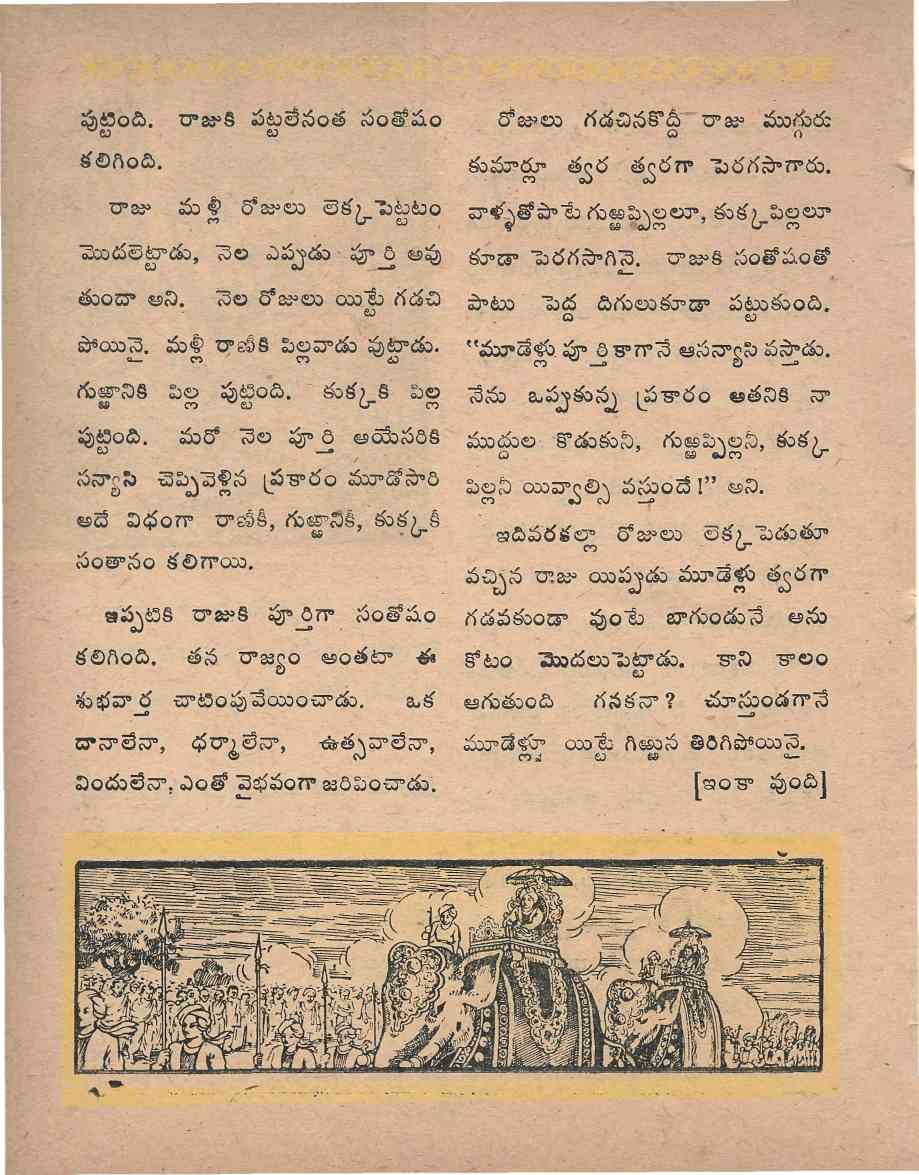 పుట్టింది. రాజుకి పట్టలేనంత సంతోషం
కలిగింది.
రాజు మళ్లీ రోజులు లెక్కపెట్టటం
మొదలెట్టాడు, నెల ఎప్పుడు పూర్తి అవు
తుందా అని. నెల రోజులు యిట్టే గడచి
పోయినై. మళ్లీ రాణీకి పిల్లవాడు పుట్టాడు.
గుఱ్ఱానికి పిల్ల పుట్టింది. కుక్కకి పిల్ల
పుట్టింది. మరో నెల పూర్తి అయేసరికి
సన్యాసి చెప్పివెళ్లిన ప్రకారం మూడోసారి
అదే విధంగా రాణీకీ, గుఱ్ఱానికీ, కుక్కకీ
సంతానం కలిగాయి.
ఇప్పటికి రాజుకి పూర్తిగా సంతోషం
కలిగింది. తన రాజ్యం అంతటా ఈ
శుభవార్త చాటింపువేయించాడు. ఒక
దానాలేనా, ధర్మాలేనా, ఉత్సవాలేనా,
విందులేనా, ఎంతో వైభవంగా జరిపించాడు.
రోజులు గడచినకొద్దీ రాజు ముగ్గురు
కుమార్లూ త్వర త్వరగా పెరగసాగారు.
వాళ్ళతోపాటే గుఱ్ఱప్పిల్లలూ, కుక్కపిల్లలూ
కూడా పెరగసాగినై. రాజుకి సంతోషంతో
పాటు పెద్ద దిగులుకూడా పట్టుకుంది.
“మూడేళ్లు పూర్తికాగానే ఆసన్యాసి వస్తాడు.
నేను ఒప్పుకున్న ప్రకారం అతనికి నా
ముద్దుల కొడుకునీ, గుఱ్ఱప్పిల్లనీ, కుక్క
పిల్లనీ యివ్వాల్సి వస్తుందే!” అని.
ఇదివరకల్లా రోజులు లెక్కపెడుతూ
వచ్చిన రాజు యిప్పుడు మూడేళ్లు త్వరగా
గడవకుండా వుంటే బాగుండునే అను
కోటం మొదలుపెట్టాడు. కాని కాలం
ఆగుతుంది గనకనా? చూస్తుండగానే
మూడేళ్లూ యిట్టే గిఱ్ఱున తిరిగిపోయినై.
[ఇంకా వుంది]